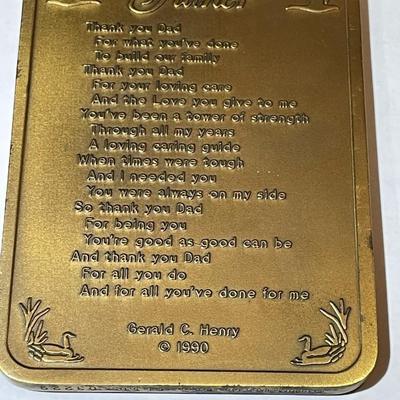 Father
Thank you Dad
For what you've done
To build our family
Thank you Dad
For your loving care
And the Love you give to me
You've been a tower of strength
Through all my years
A loving caring guide
When times were tough
And I needed you
You were always on my side
So thank you Dad
For being you
You're good as good can be
And thank you Dad
For all you do
And for all you've done for me
Gerald C. Henry
© 1990